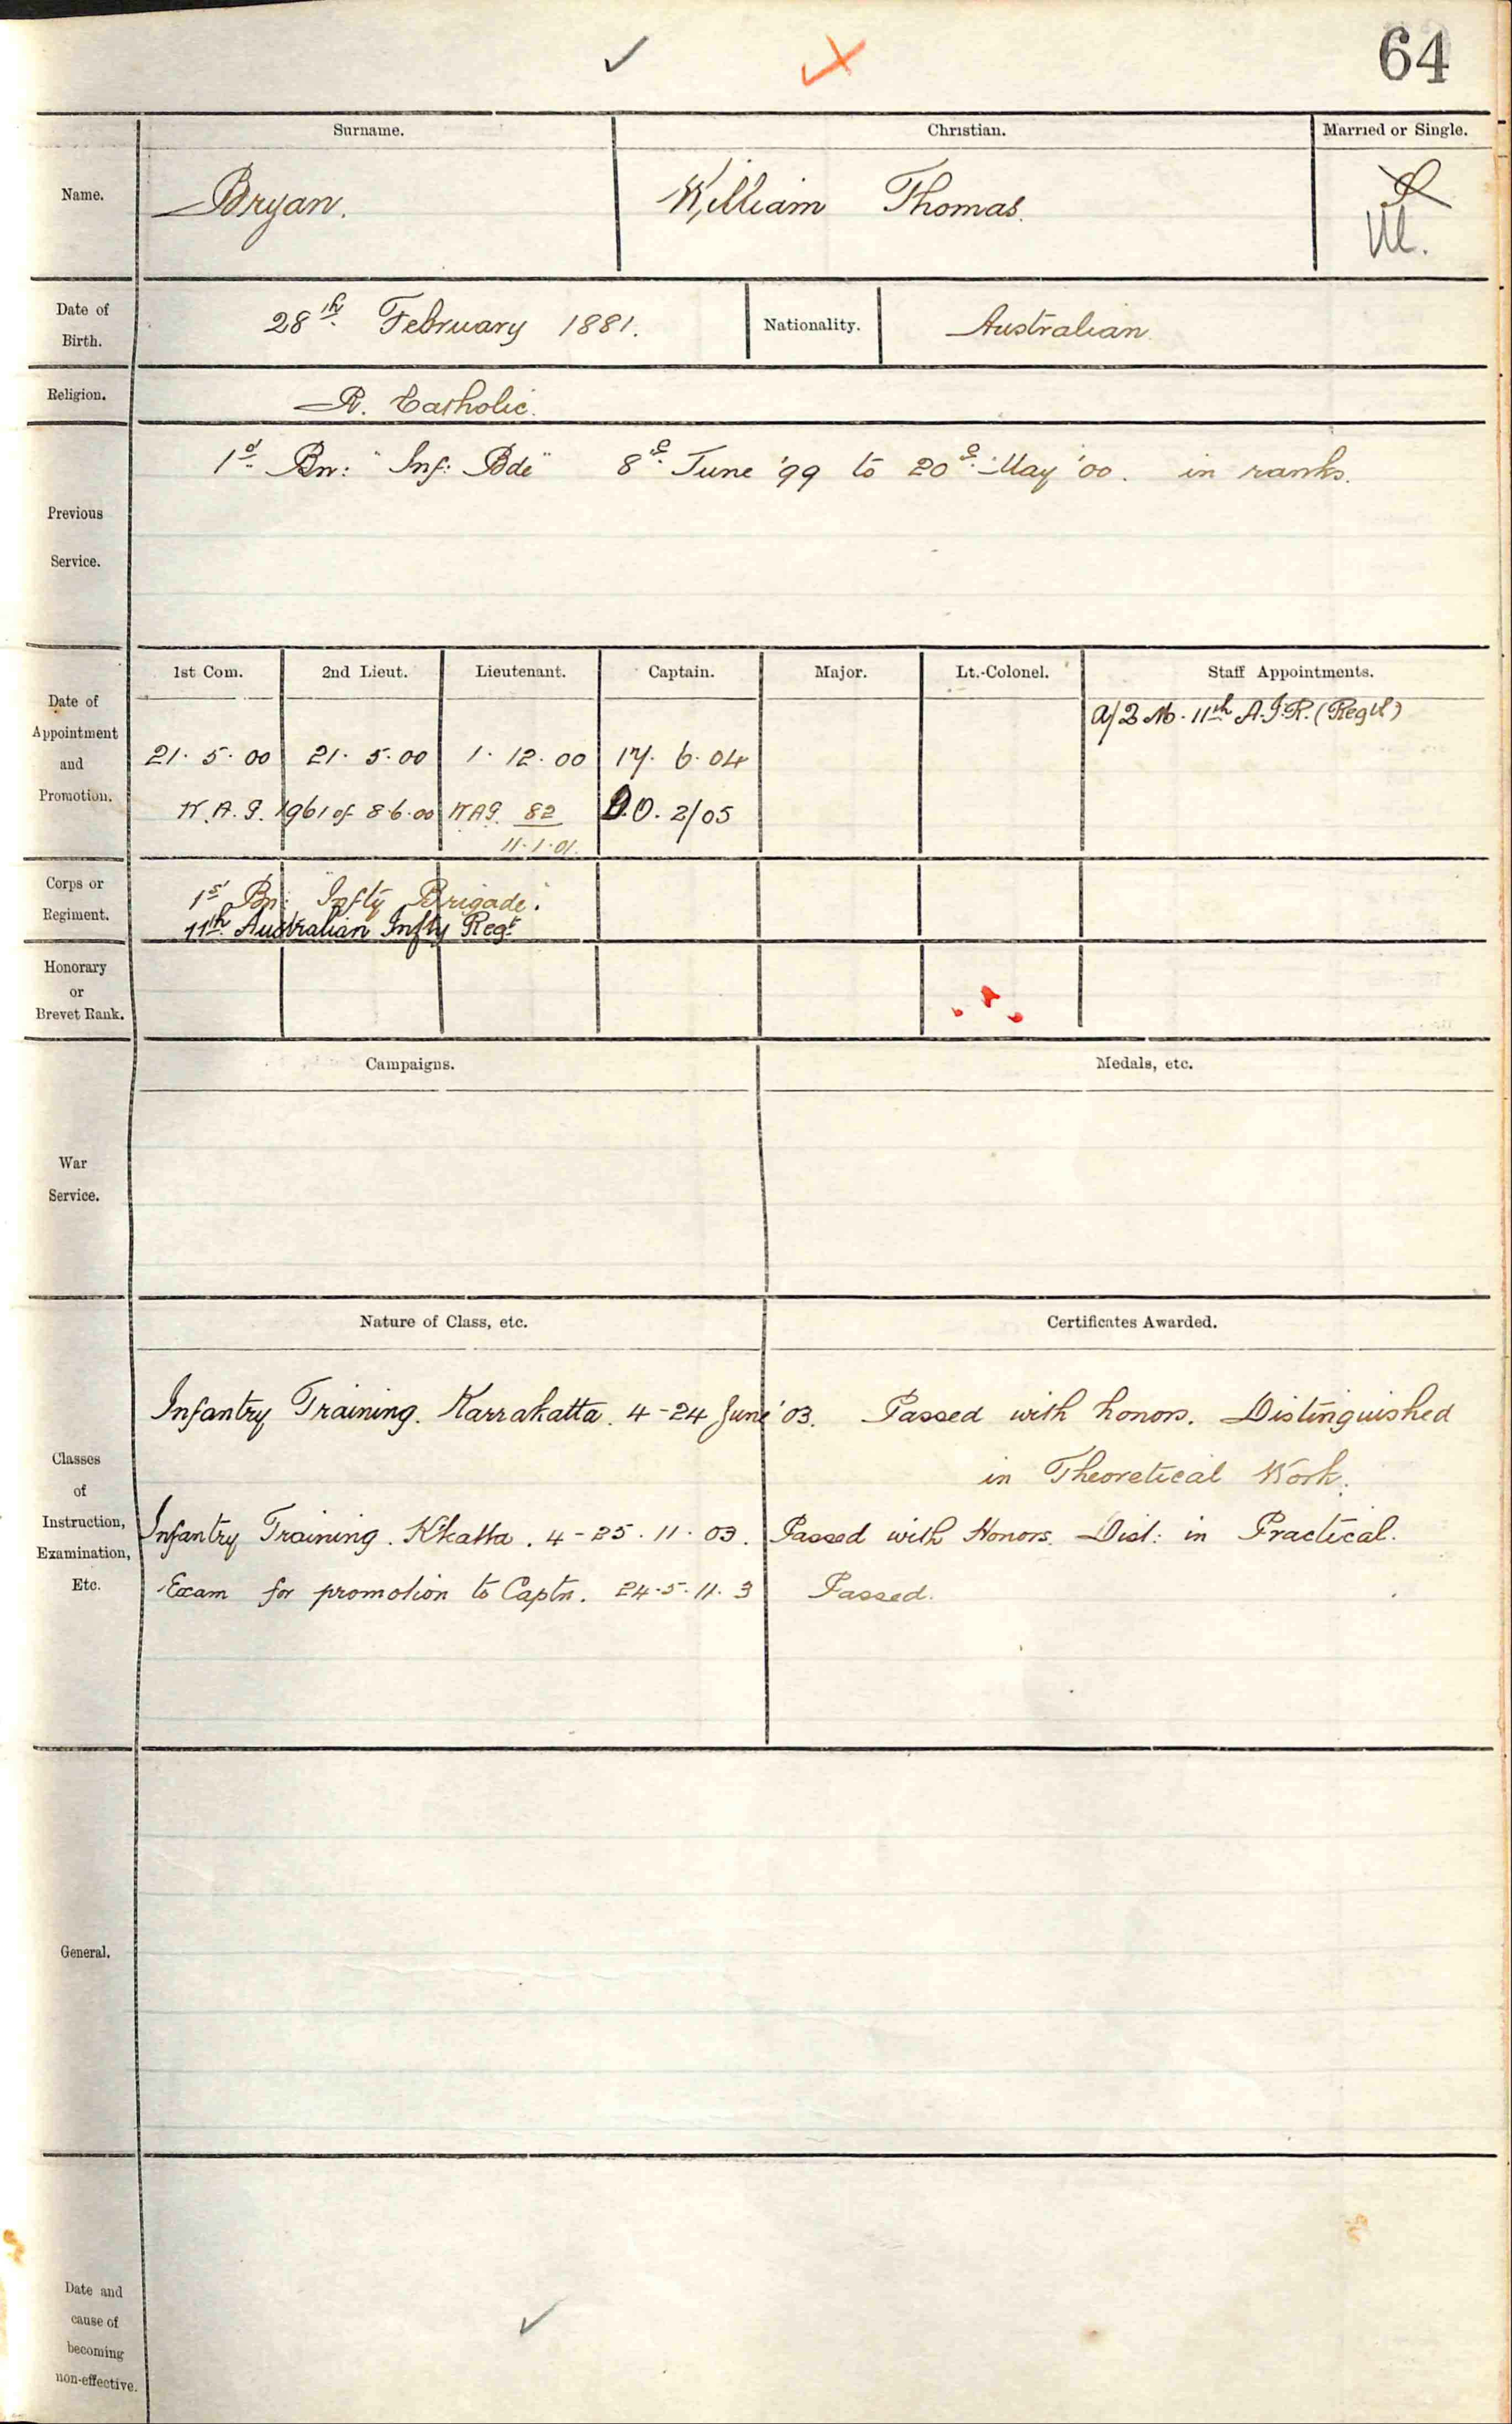 64
Surname. Christian. Married or Single.
Name. Bryan. William Thomas. S
M.
Date of Birth. 28th February 1881. Nationality. Australian
Religion. R. Catholic.
1st Bn: "Inf: Bde" 8th June '99 to 20th May '00. in ranks.
Previous
Service.
1st Com. 2nd Lieut. Lieutenant. Captain. Major. Lt.-Colonel. Staff Appointments.
a/Q M. 11th A.I.R. (Regtl)
Date of
Appointment
and
Promotion.
21. 5. 00 21. 5. 00 1. 12. 00 17. 6. 04
W.A.G. 1961 of 8.6.00 WAG. 82 D.O. 2/05
11.1.01.
Corps or
Regiment.
1st Bn: "Infty Brigade".
11th Australian Infty Regt
Honorary
or
Brevet Rank.
Campaigns. Medals, etc.
War
Service.
Nature of Class, etc. Certificates Awarded.
Infantry Training. Karrakatta. 4-24 June '03. Passed with honors. Distinguished
in Theoretical Work.
Classes
of
Instruction,
Examination,
Etc.
Infantry Training. K'katta. 4-25. 11. 03. Passed with Honors. Dist: in Practical.
Exam for promotion to Captn. 24.5.11.3 Passed.
General.
Date and
cause of
becoming
non-effective.